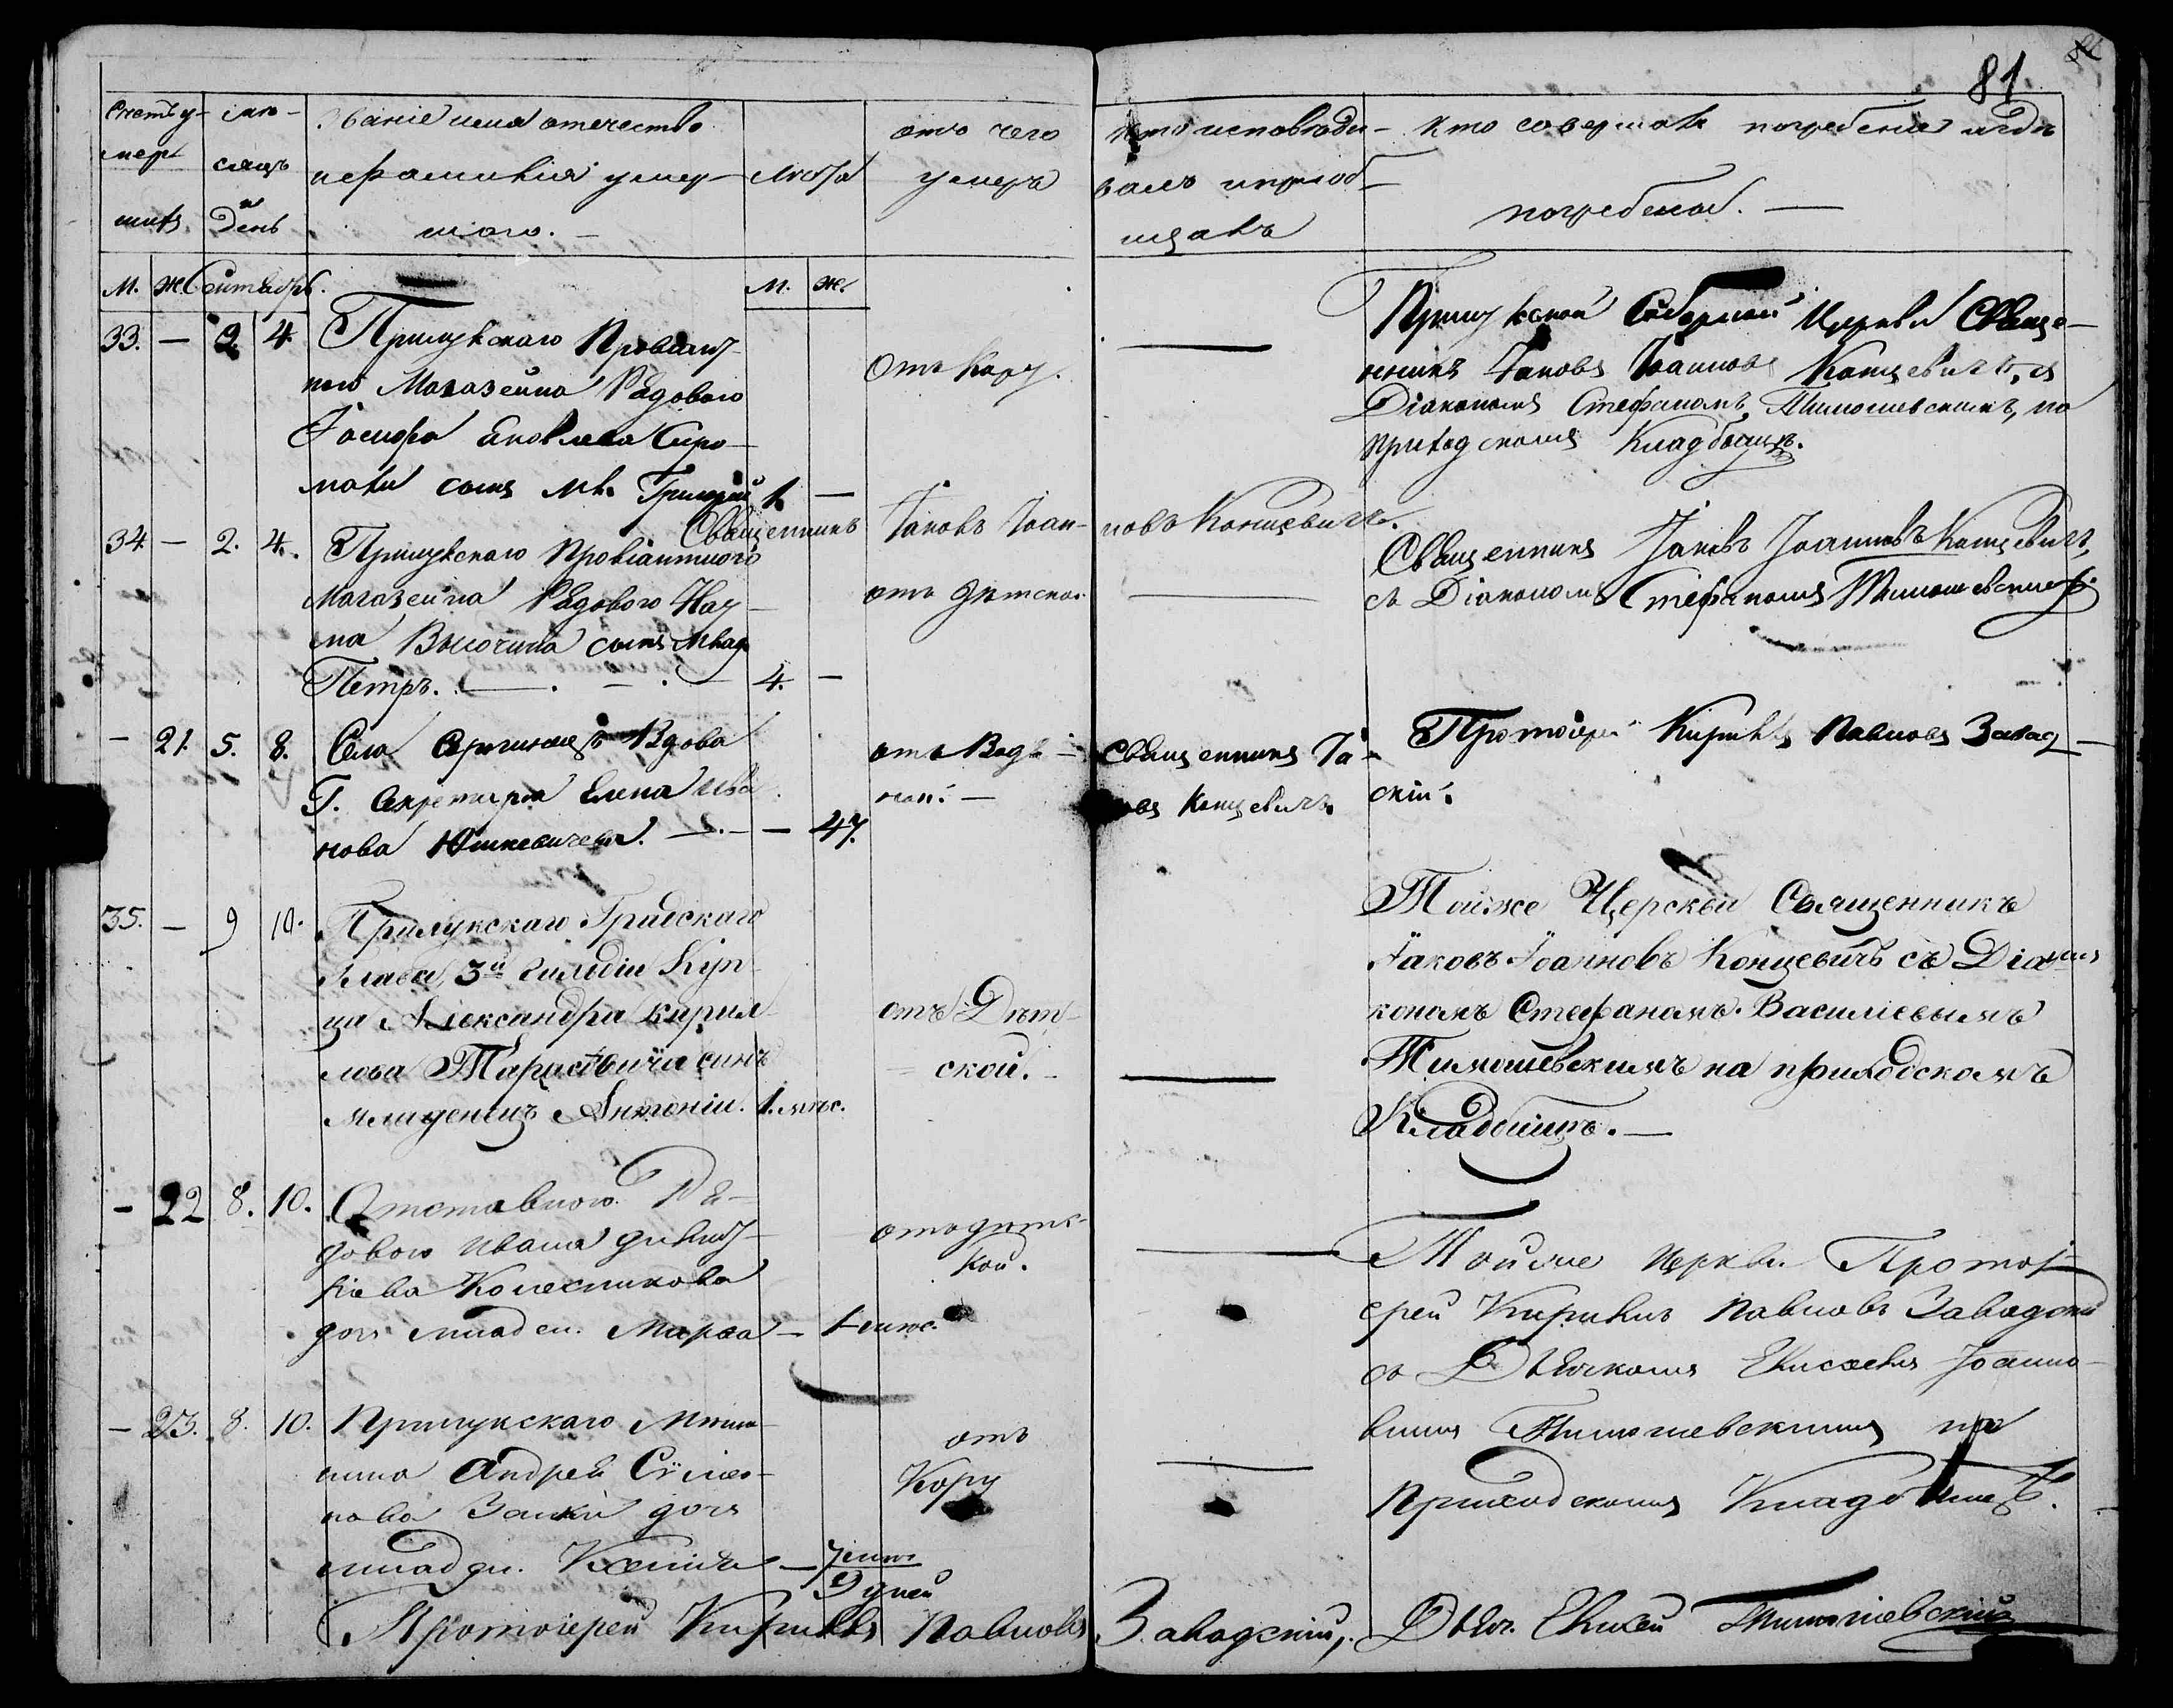 81
Счетъ у-
мер-
шихъ
мѣ-
сяцъ
и
день
Званіе имя отечество
и фамилія умер-
шаго. —
Лѣта
отъ чего
умеръ
кто исповѣды-
валъ и пріоб-
щалъ
Кто совершалъ погребеніе и гдѣ
погребены. —
М. Ж. Сентябрь.
М. Ж.
33. — 2. 4. Прилукскаго Провіант-
наго Магазейна Рядоваго
Іосифа Яковлева Сиро-
сынъ мл. Григорій 1. —
Отъ Кору.
—
Прилукской Соборной Церкви Священ-
никъ Іаковъ Іоанновъ Концевичъ, съ
Діакономъ Стефаномъ Тимошевскимъ, на
приходскомъ Кладбищѣ.
Священникъ Іаковъ Іоан- новъ Концевичъ.
34 — 2. 4. Прилукскаго Провіантнаго
Магазейна Рядоваго Нау-
ма Высочина сынъ млад.
Петръ. — 4. —
отъ дѣтской
—
Священникъ Іаковъ Іоанновъ Концевичъ,
съ Діакономъ Стефаномъ Тимошевскимъ
— 21. 5. 8. Села Вдова
Г. Секретаря Елена Ива-
нова Юшкевичева. — — 47.
отъ Водя-
ной. —
Священникъ Іа-
ковъ Концевичъ.
Протоіерей Кириллъ Павловъ Завад-
скій.
35. — 9 10. Прилукскаго Градскаго
3й Гильдіи Куп-
ца Александра Кирил-
лова сынъ
младенецъ Антоній. 1. мѣс.
отъ Дѣт-
ской. —
—
Тойже Церкви Священникъ
Іаковъ Іоанновъ Концевичъ съ Діа-
кономъ Стефаномъ Василіевымъ
Тимошевскимъ на приходскомъ
Кладбищѣ. —
— 22 8. 10. Отставного Ря-
доваго Ивана
Колесникова
дочь младен. Марѳа — 1 мѣс.
отъ дѣтс-
кой.
—
Тойже Церкви Протоі-
ерей Кириллъ Павловъ Завадскій
съ Дьячкомъ Елисеемъ Іоанно-
вымъ Тимошевскимъ на
Приходскомъ Кладбищѣ.
— 23. 8. 10. Прилукскаго Мѣща-
нина Андрея Симео-
нова Заики дочь
младен. Ксенія — 7 мѣс.
9 дней
отъ
Кору
—
Протоіерей Кириллъ Павловъ Завадскій, Дьяч. Елисей Тимошевскій